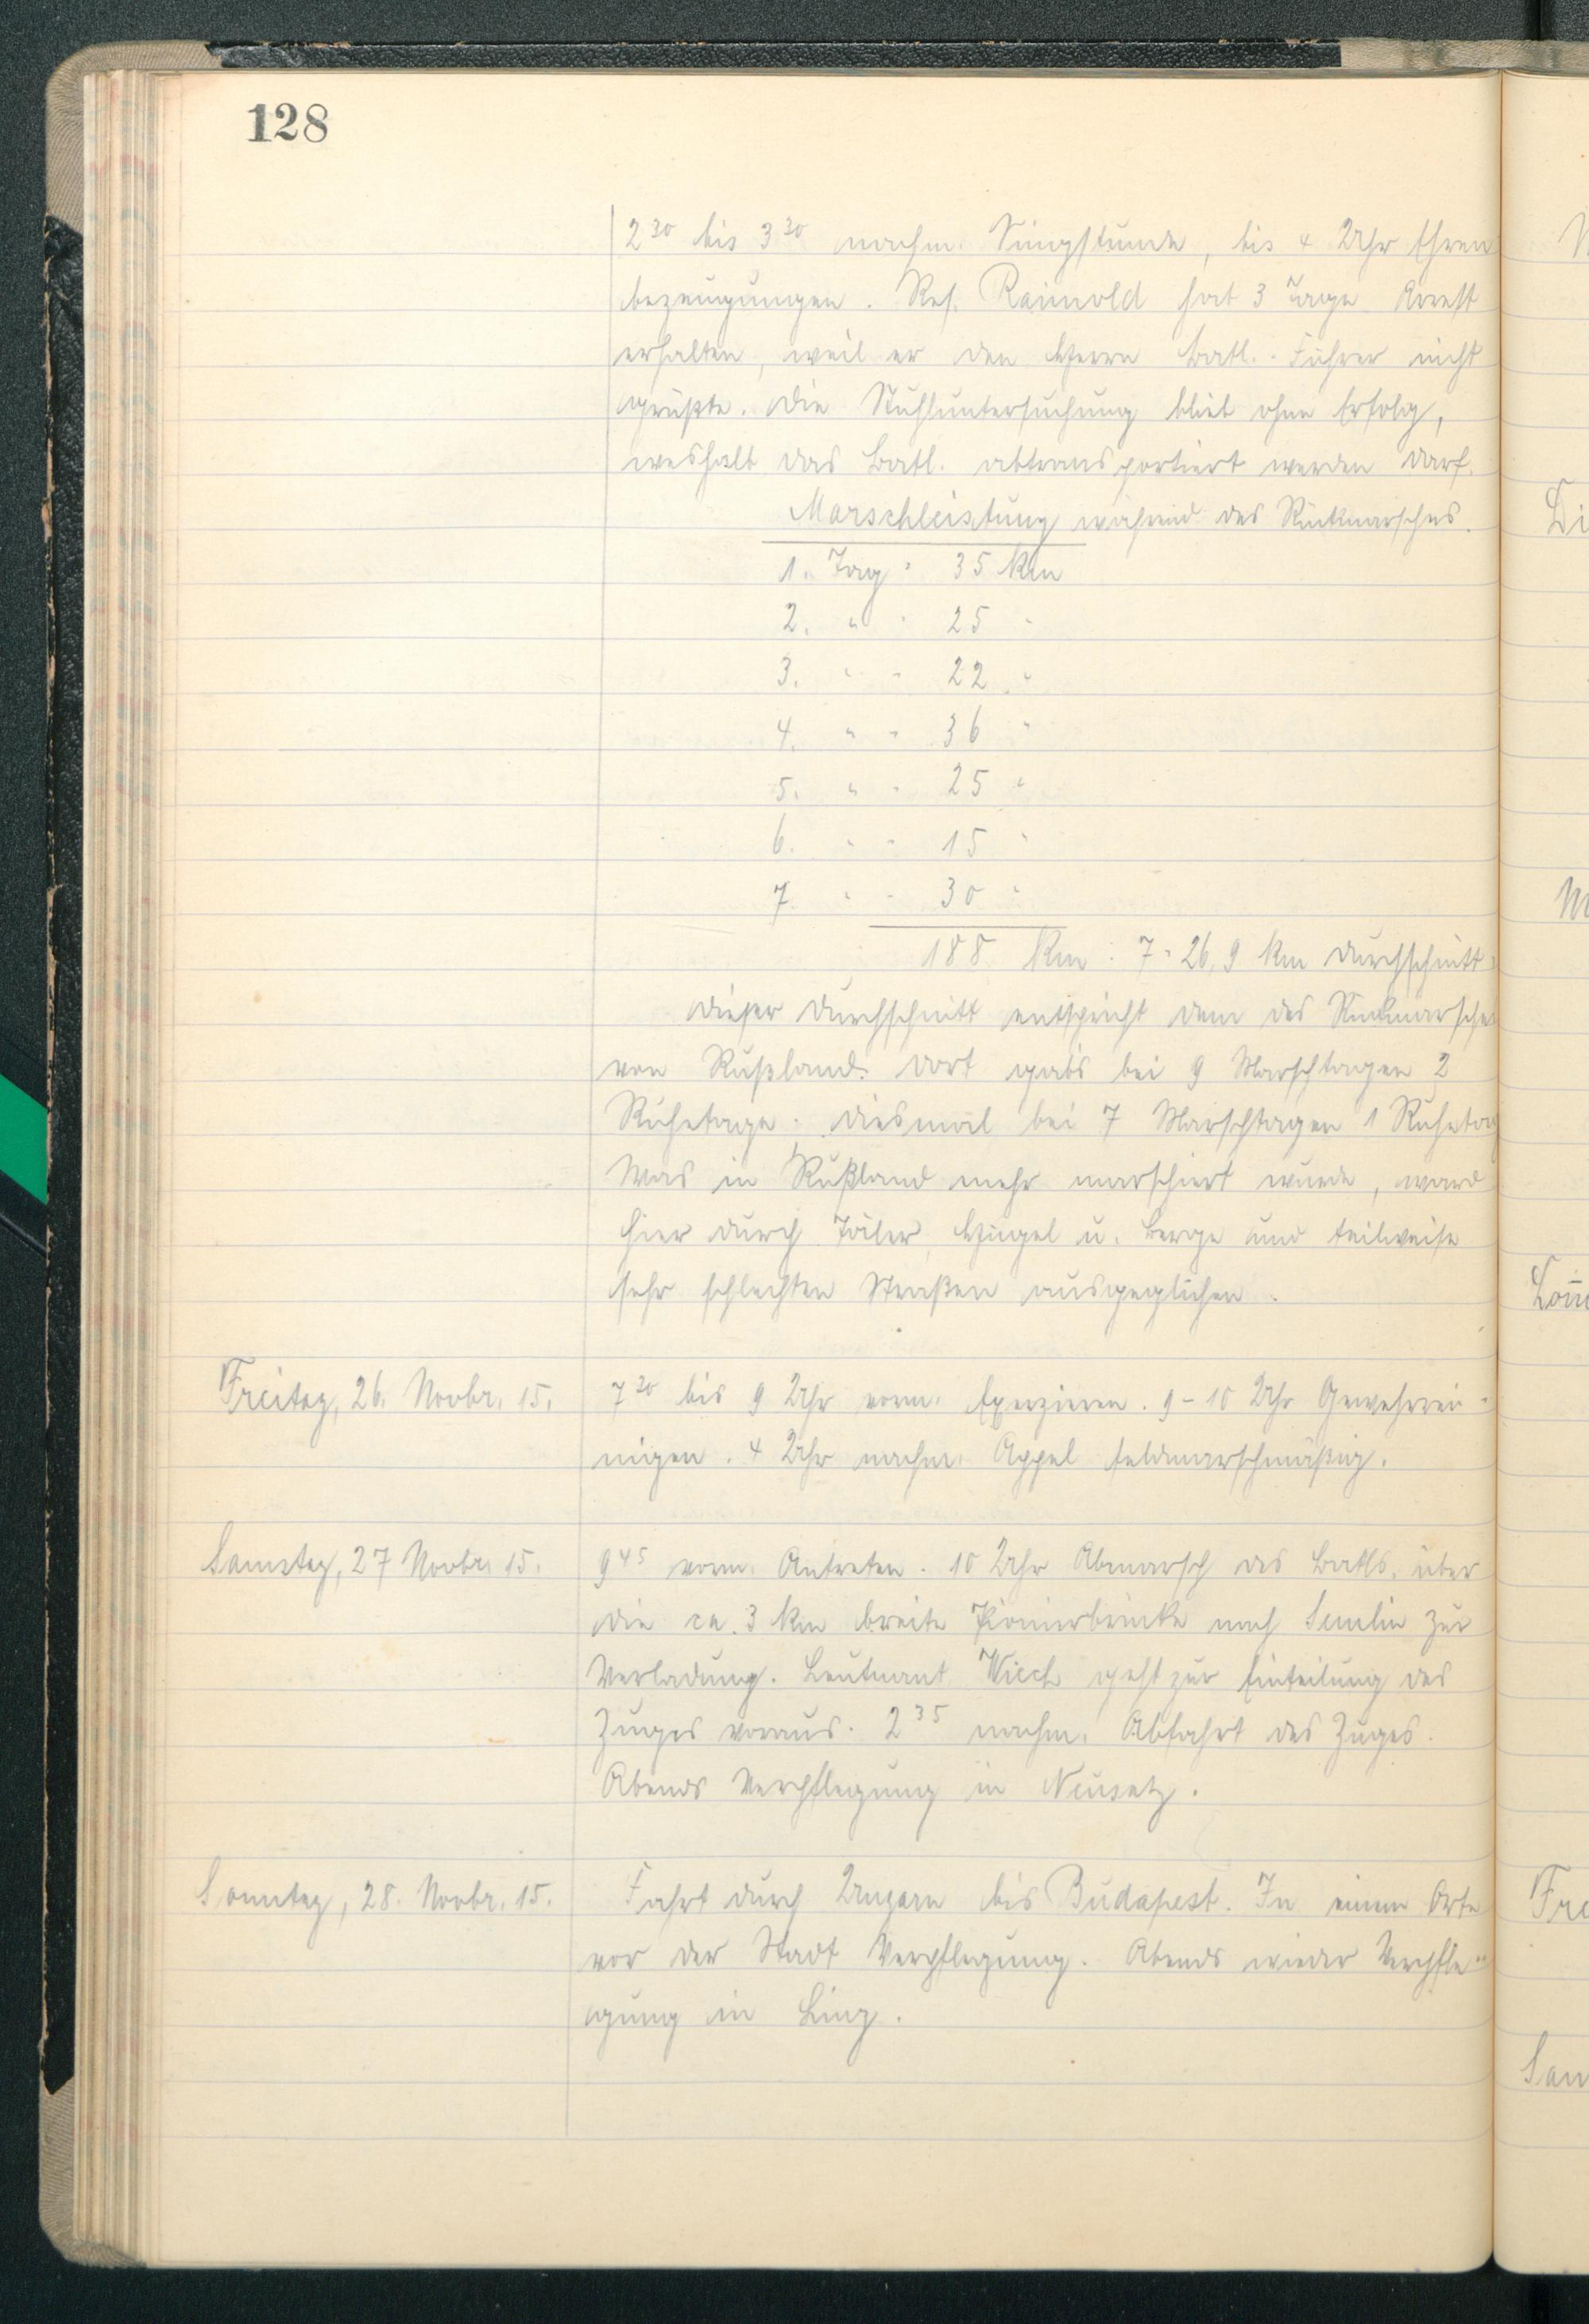 128
2³⁰ bis 3³⁰ nachm. Singstunde, bis 4 Uhr Ehren
bezeugungen. Res. Raimold hat 3 Tage Arrest
erhalten, weil er den Herrn Batl.-Führer nicht
grüßte. Die Stuhluntersuchung blieb ohne Erfolg,
weshalb das Batl. abtransportiert werden darf.
Marschleistung während des Rückmarsches.
1. Tag = 35 km
2. " " 25 "
3. " " 22 "
4. " " 36 "
5. " " 25 "
6. " " 15 "
7. " " 30 "
188 km : 7 = 26,9 km Durchschnitt
Dieser Durchschnitt entspricht dem des Rückmarsches
von Rußland. Dort gab's bei 9 Marschtagen 2
Ruhetage; diesmal bei 7 Marschtagen 1 Ruhetag
Was in Rußland mehr marschiert wurde, ward
hier durch Täler, Hügel u. Berge und teilweise
sehr schlechten Straßen ausgeglichen.
Freitag, 26. Novbr. 15. 7³⁰ bis 9 Uhr vorm. Exerzieren. 9-10 Uhr Gewehrrei-
nigen. 4 Uhr nachm. Appel feldmarschmäßig.
Samstag, 27 Novbr. 15. 9⁴⁵ vorm. Antreten. 10 Uhr Abmarsch des Batls. über
die ca. 3 km breite Pionierbrücke nach Semlin zur
Verladung. Leutnant Wiech geht zur Einteilung des
Zuges voraus. 2³⁵ nachm. Abfahrt des Zuges.
Abends Verpflegung in Neusatz.
Sonntag, 28. Novbr. 15. Fahrt durch Ungarn bis Budapest. In einem Orte
vor der Stadt Verpflegung. Abends wieder Verpfle-
gung in Linz.